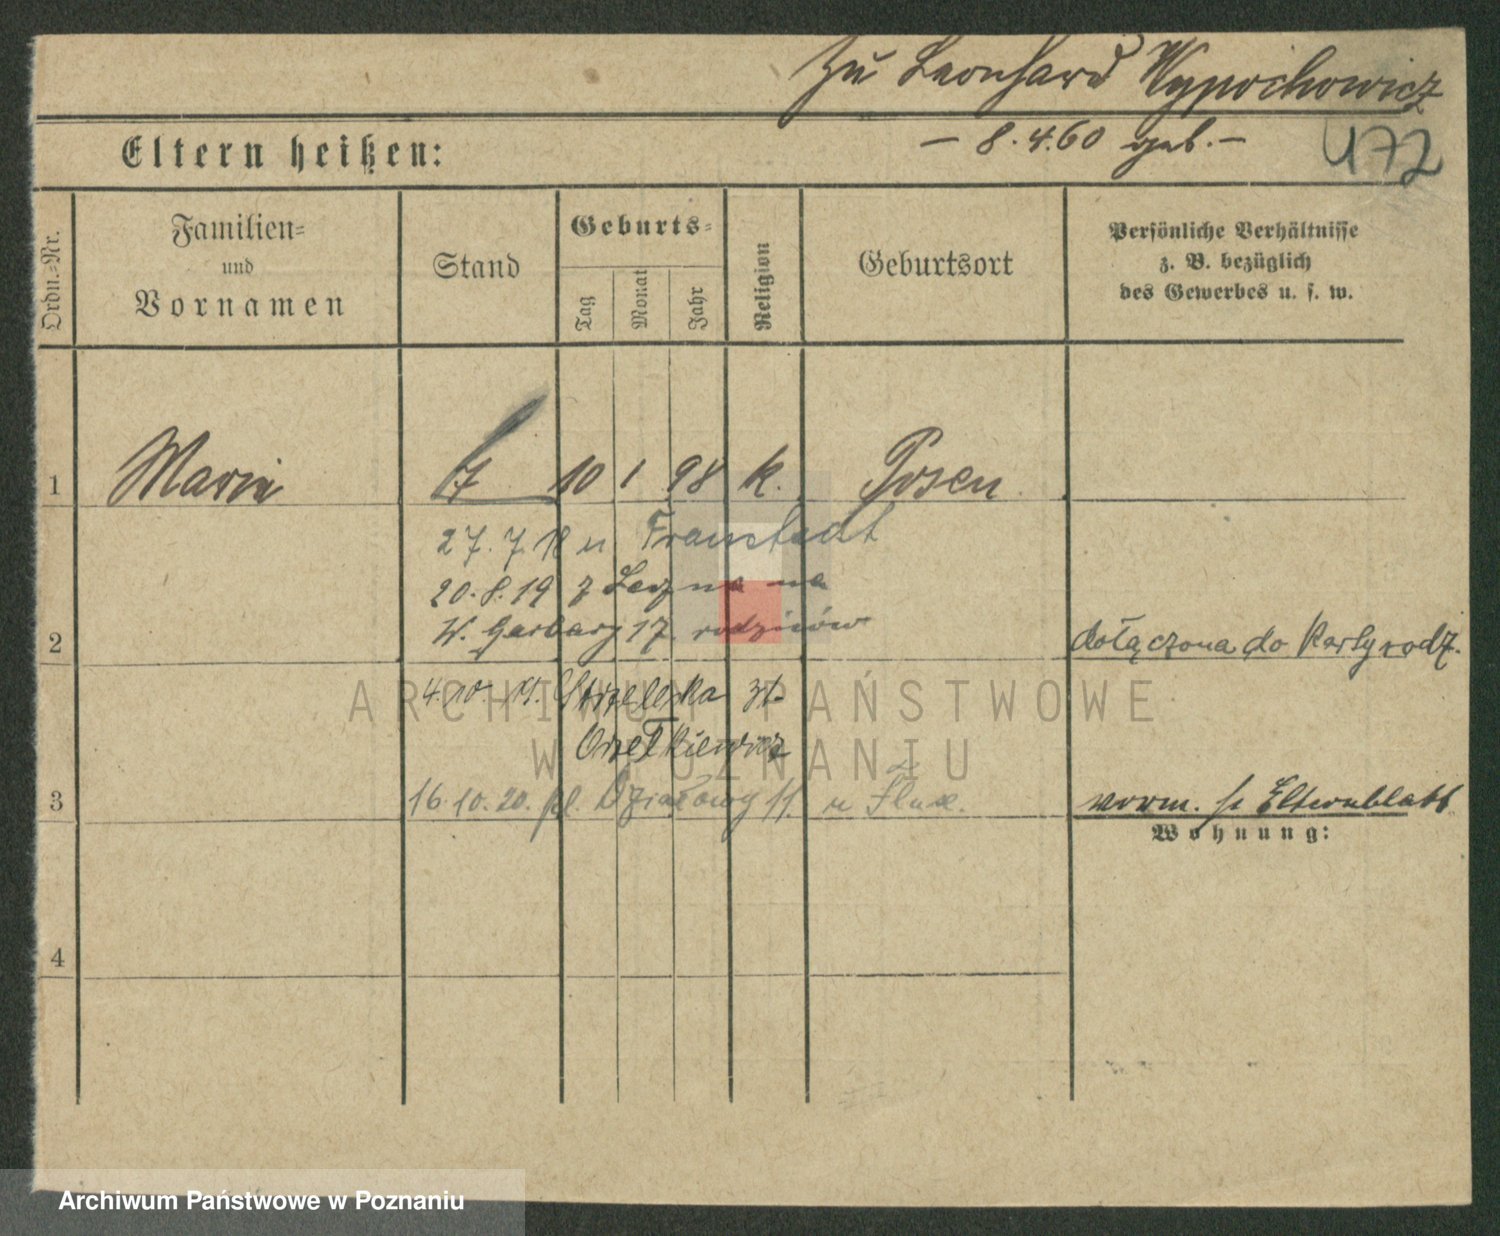 Zu Leonhard Wypochowicz
Eltern heißen:
— 8.4.60 geb. —
472
Ordn.-Nr.
Familien-
und
Vornamen
Stand
Geburts-
Tag
Monat
Jahr
Religion
Geburtsort
Persönliche Verhältnisse
z. B. bezüglich
des Gewerbes u. s. w.
1 Maria 10 1 98 k. Posen
27. 7. 18 n Fraustadt
20. 8. 19 z Leszna na
W. Garbary 17 rodziców
2
dołączona do Karty rodz.
4. 10. 19. Strzelecka
ARCHIWUM PAŃSTWOWE
W POZNANIU
3
16. 10. 20. pl. Działowy 11. u
vorm. Elternblatt
Wohnung:
4
Archiwum Państwowe w Poznaniu